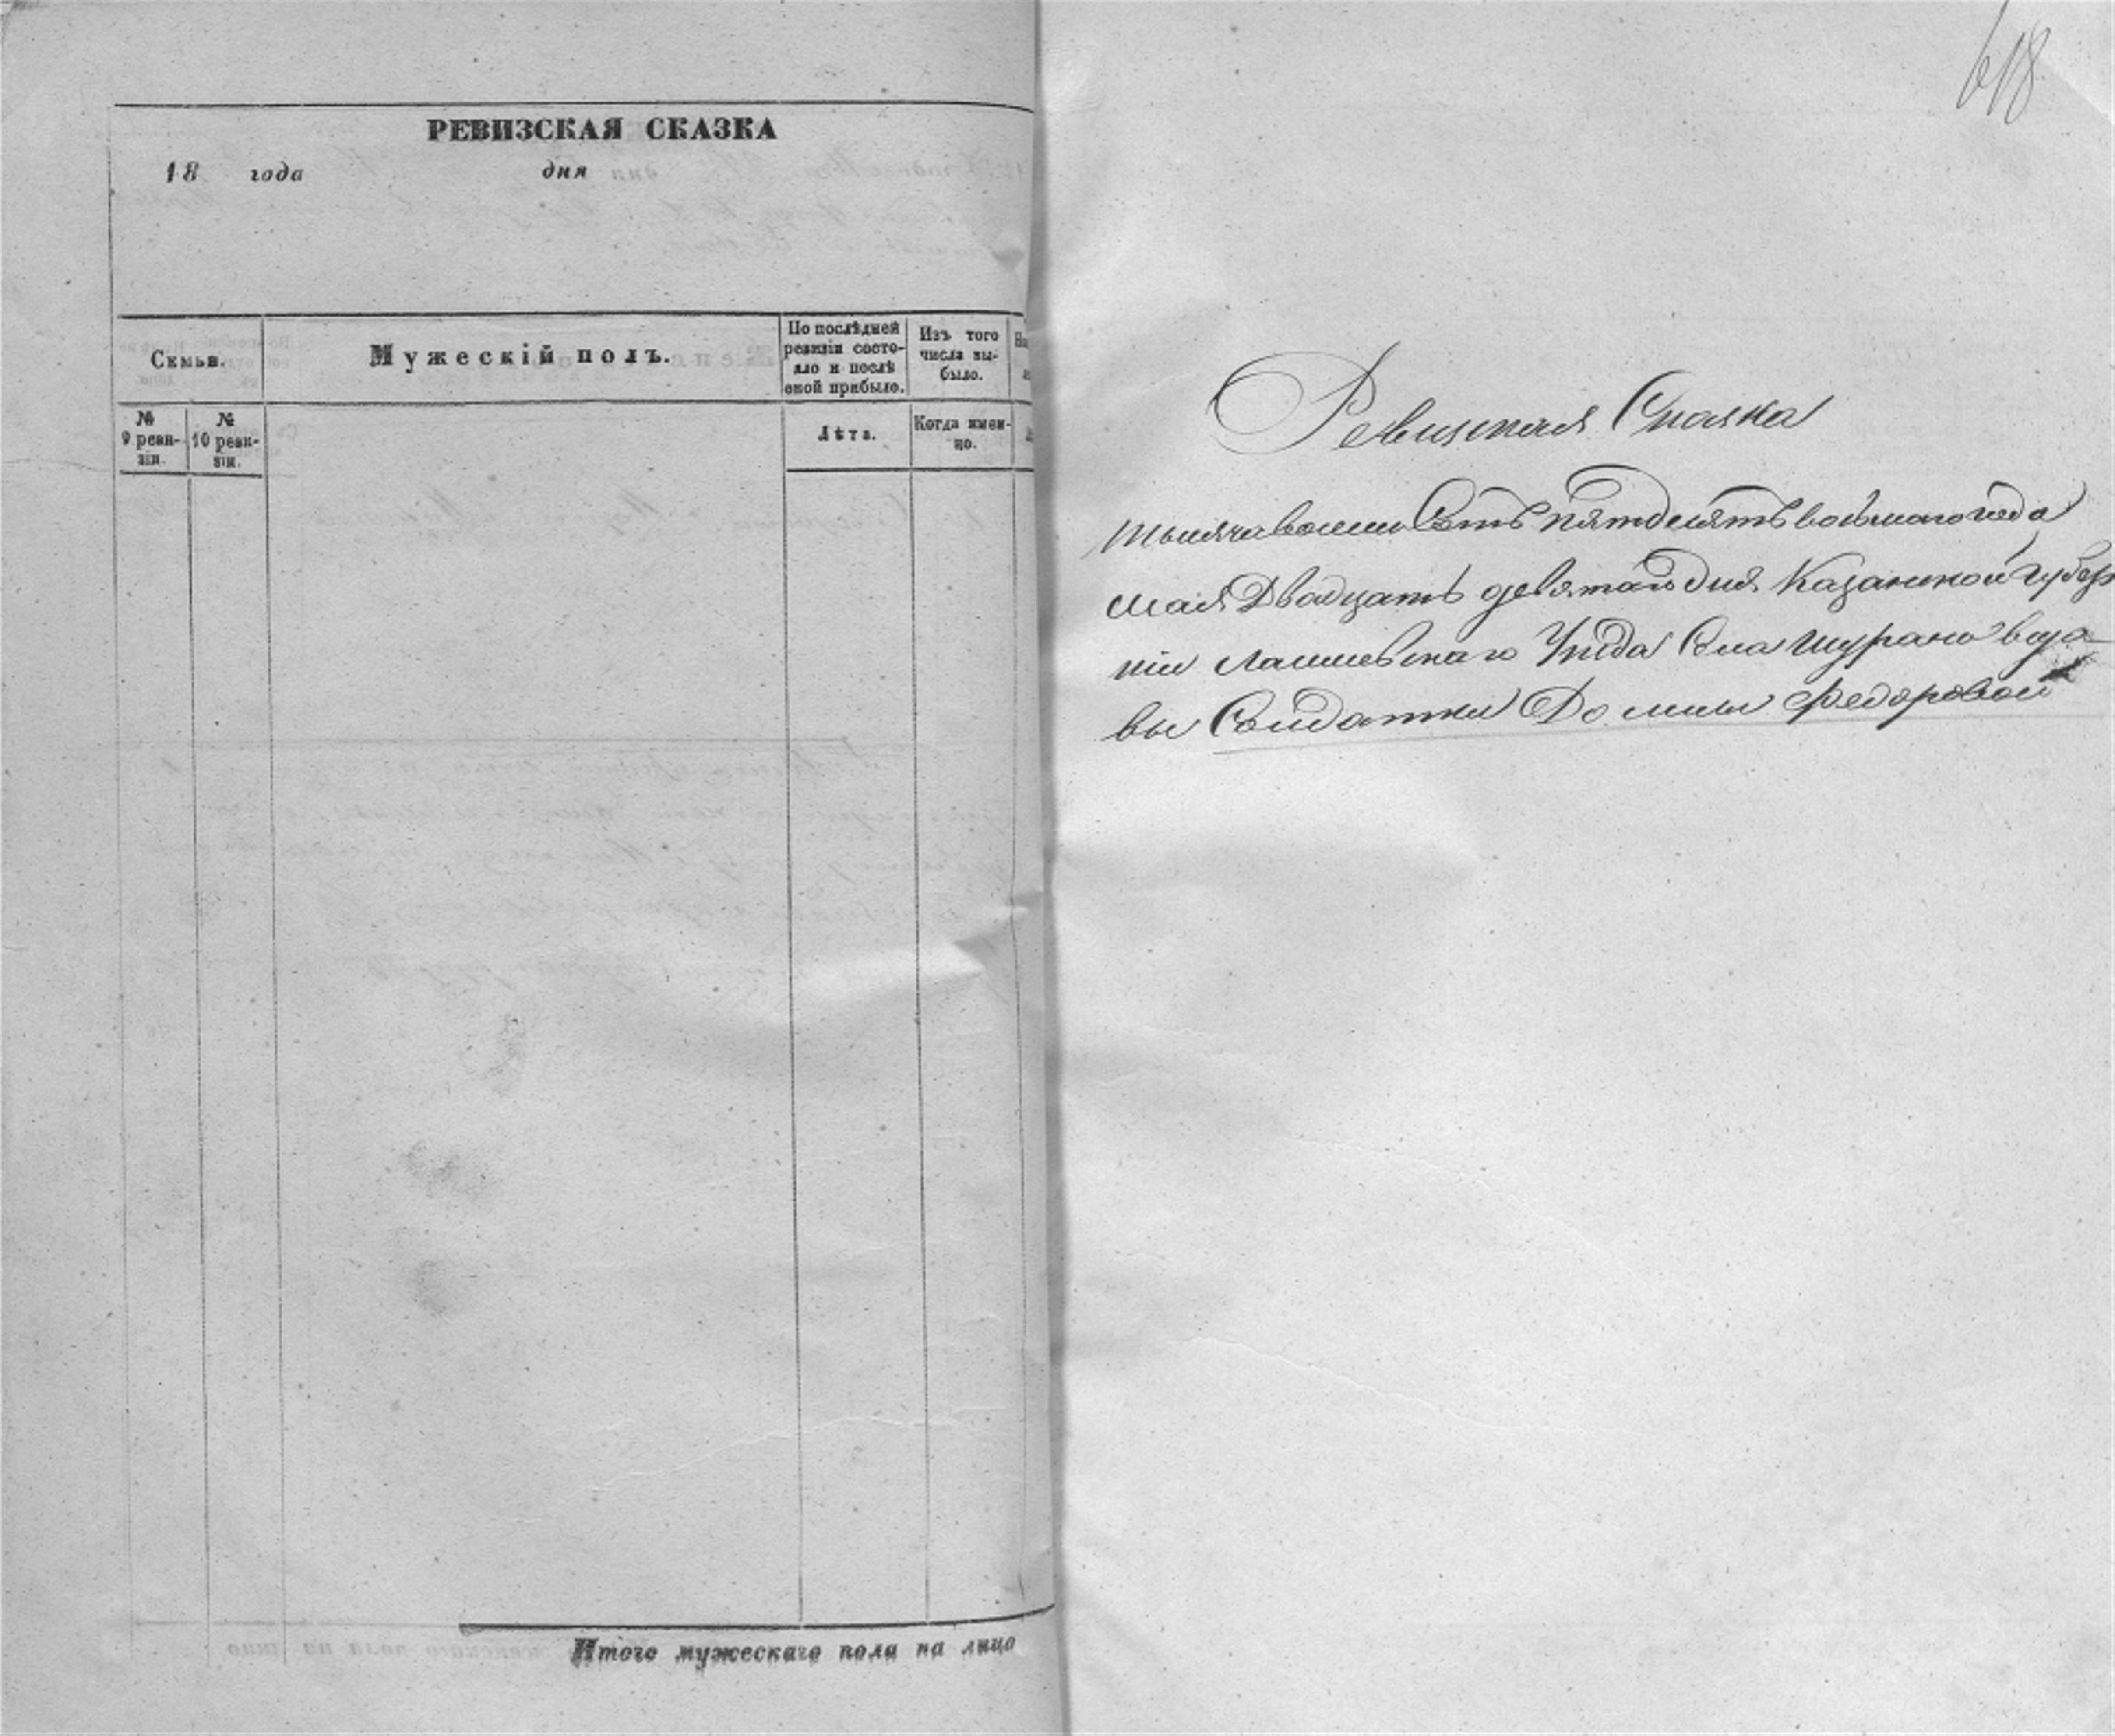 РЕВИЗСКАЯ СКАЗКА
18 года дня
Семьи.
Мужескій полъ.
По послѣдней
ревизіи состо-
яло и послѣ
оной прибыло.
Изъ того
числа вы-
было.
№
9 реви-
зіи.
№
10 реви-
зіи.
Лѣта.
Когда имен-
но.
Итого мужескаго пола на лицо
618
Ревизская Сказка
тысяча восемь Сотъ пятдесятъ восьмаго года
мая Двадцать девятаго дня Казанской губер
ніи Лаишевскаго Уѣзда Села Шурано вдо
вы Солдатки Домны Федоровой